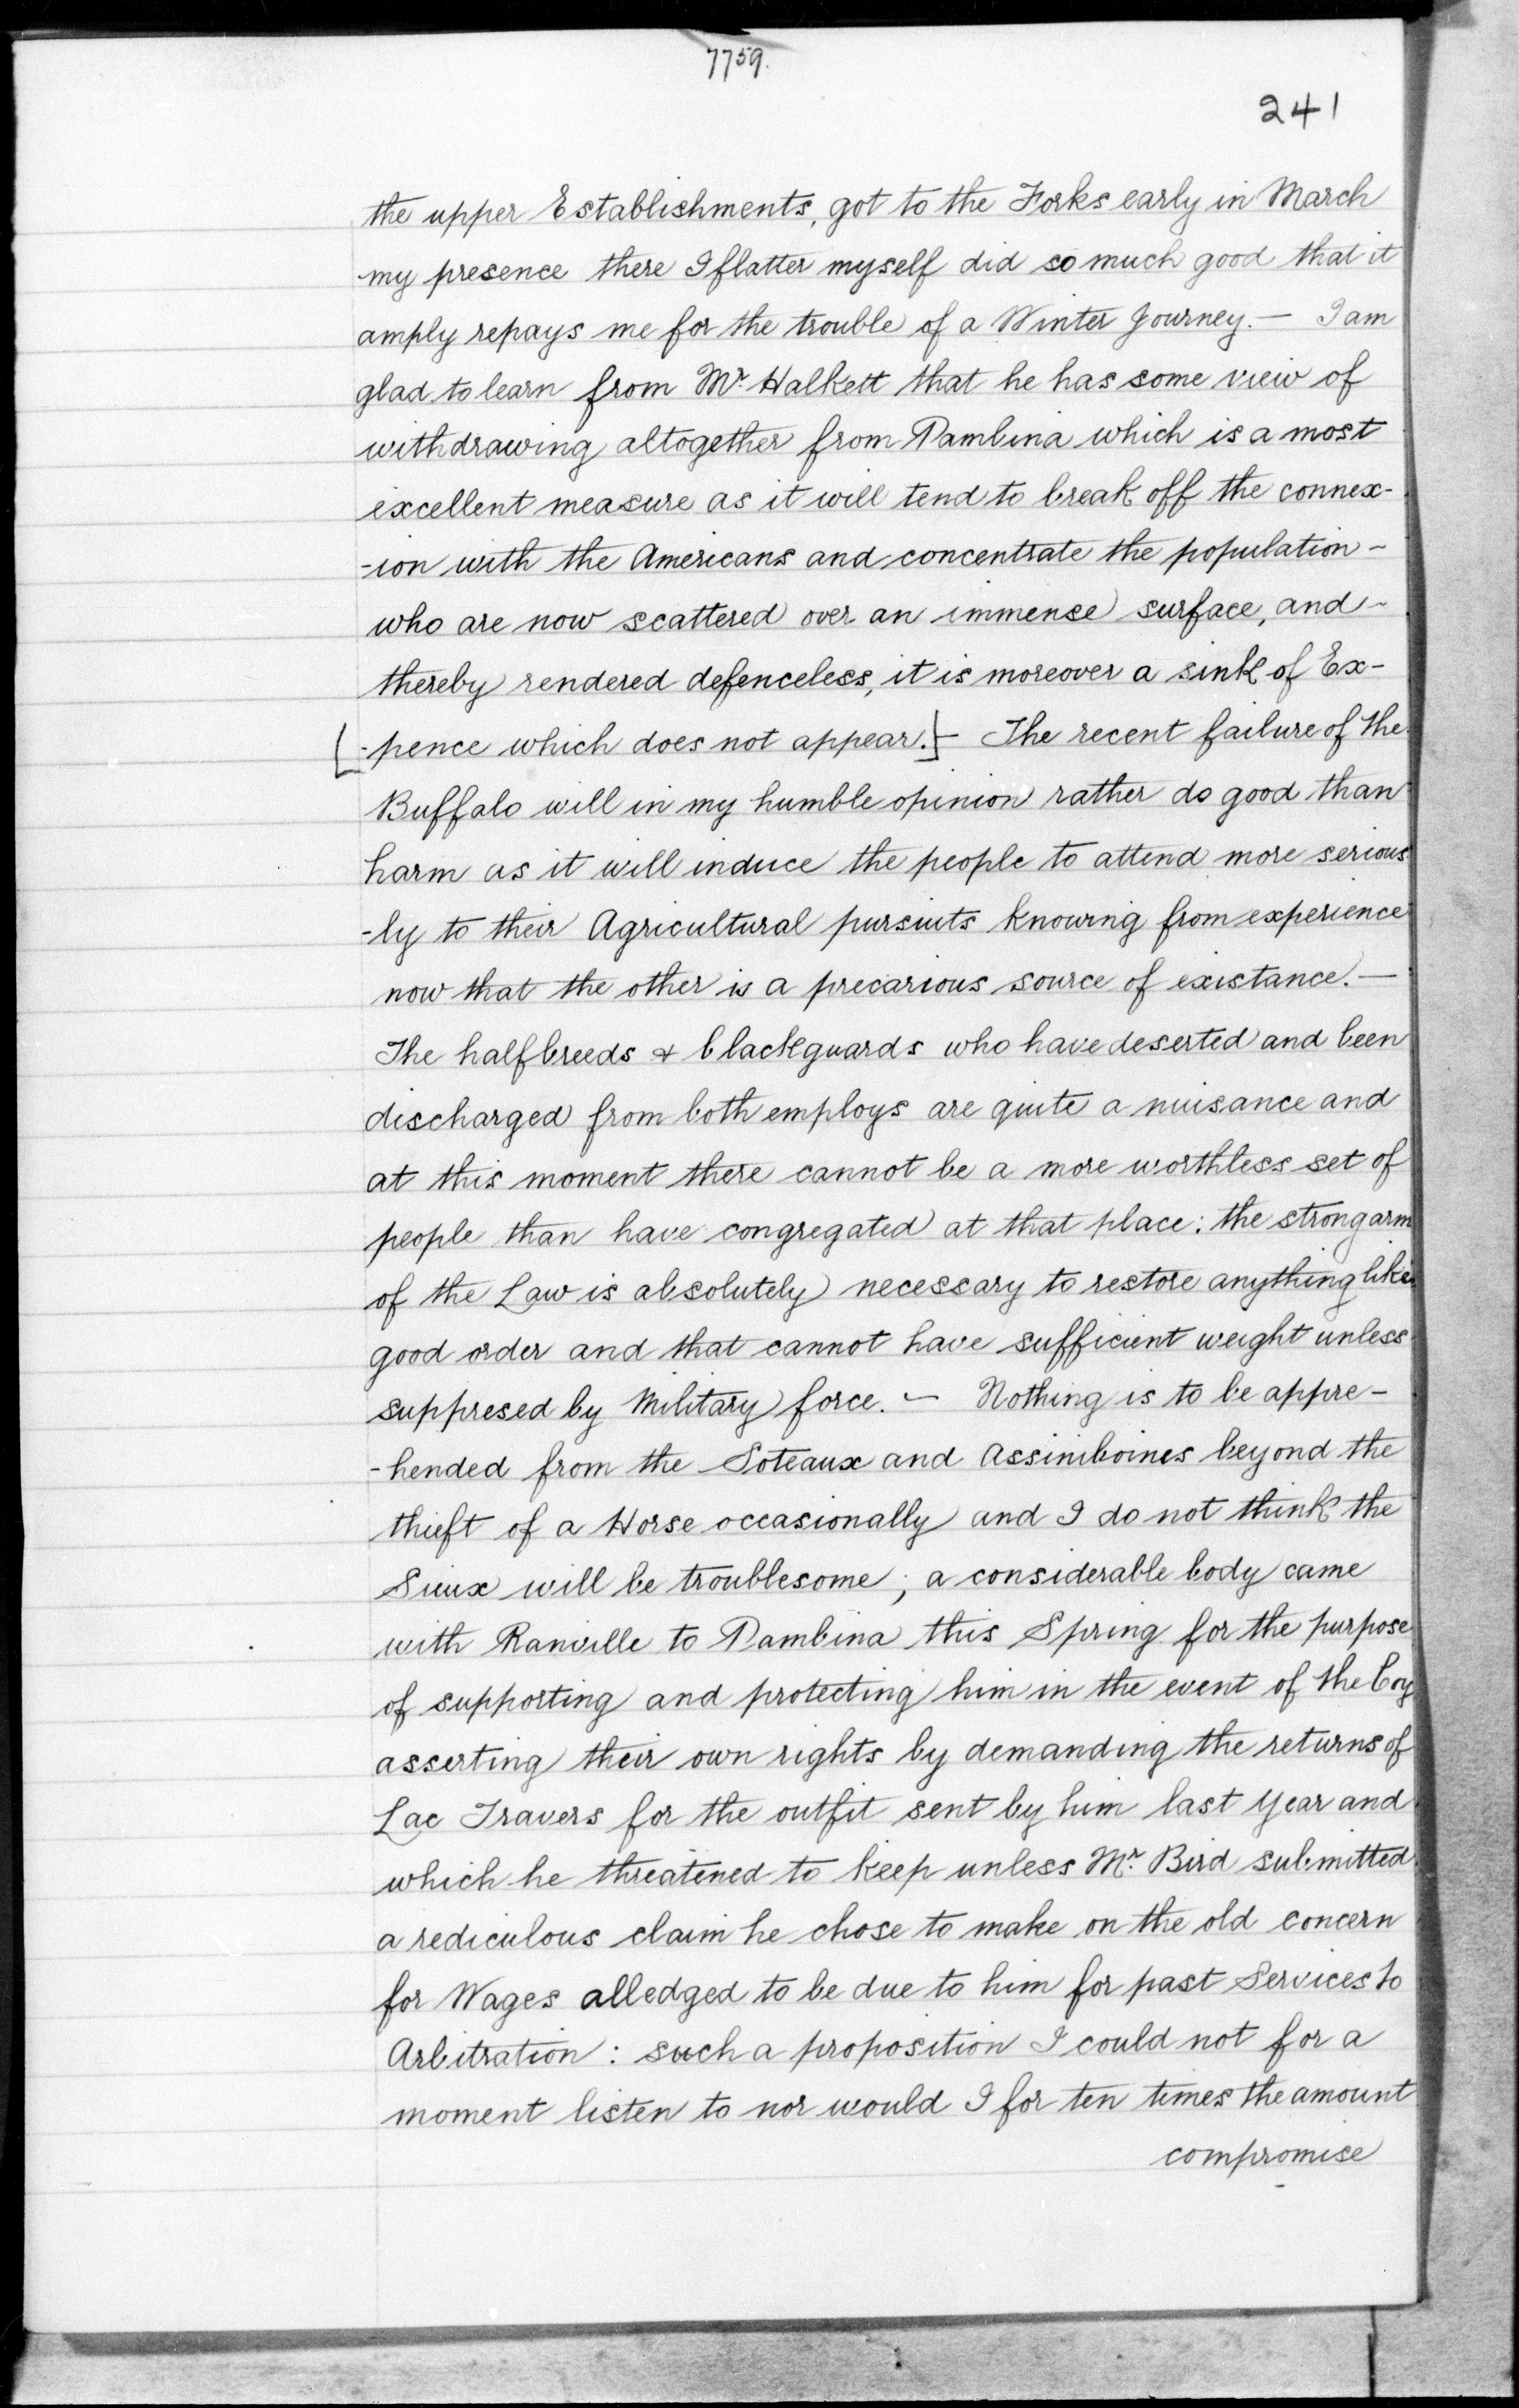 7759.
241
the upper Establishments, got to the Forks early in March
my presence there I flatter myself did so much good that it
amply repays me for the trouble of a Winter Journey. — I am
glad to learn from Mr. Halkett that he has some view of
withdrawing altogether from Pambina which is a most
excellent measure as it will tend to break off the connex-
-ion with the Americans and concentrate the population -
who are now scattered over an immense surface, and -
thereby rendered defenceless, it is moreover a sink of Ex-
[-pence which does not appear.] - The recent failure of the
Buffalo will in my humble opinion rather do good than
harm as it will induce the people to attend more serious
-ly to their Agricultural pursuits knowing from experience
now that the other is a precarious source of existance. —
The halfbreeds & blackguards who have deserted and been
discharged from both employs are quite a nuisance and
at this moment there cannot be a more worthless set of
people than have congregated at that place: the strong arm
of the Law is absolutely necessary to restore anything like
good order and that cannot have sufficient weight unless
suppresed by Military force. — Nothing is to be appre-
-hended from the Soteaux and Assiniboines beyond the
thieft of a Horse occasionally and I do not think the
Siux will be troublesome; a considerable body came
with Ranville to Pambina this Spring for the purpose
of supporting and protecting him in the event of the Coy
asserting their own rights by demanding the returns of
Lac Travers for the outfit sent by him last year and
which he threatened to keep unless Mr. Bird submitted
a rediculous claim he chose to make on the old concern
for Wages alledged to be due to him for past Services to
Arbitration: such a proposition I could not for a
moment listen to nor would I for ten times the amount
compromise